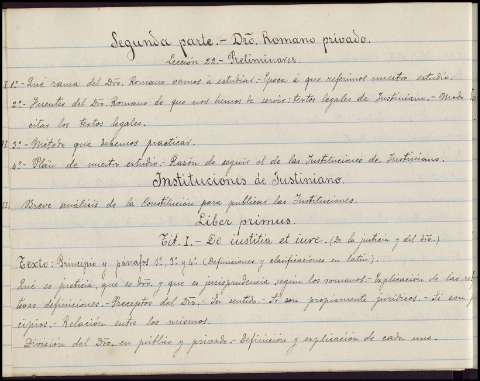 Segunda parte.- Dro. Romano privado.
Lección 22.- Preliminares
1º.- Qué rama del Dro. Romano vamos á estudiar.- Época á que referimos nuestro estudio.
2º.- Fuentes del Dro. Romano de que nos hemos de servir: textos legales de Justiniano.- Modo de
citar los textos legales.
3º.- Método que debemos practicar.
4º.- Plan de nuestro estudio.- Razón de seguir el de las Instituciones de Justiniano.
Instituciones de Justiniano.
Breve análisis de la Constitución para publicar las Instituciones.
Liber primus.
Tit. I.- De iustitia et iure. (De la justicia y del Dro.)
Texto: Principio y párrafos 1º, 3º y 4º (Definiciones y clasificaciones en latín).
Qué es justicia, qué es Dro. y qué es jurisprudencia según los romanos.- Explicación de las
definiciones.- Preceptos del Dro.- Su sentido.- Si son propiamente jurídicos.- Si son
.- Relación entre los mismos.
División del Dro. en público y privado.- Definición y explicación de cada uno.